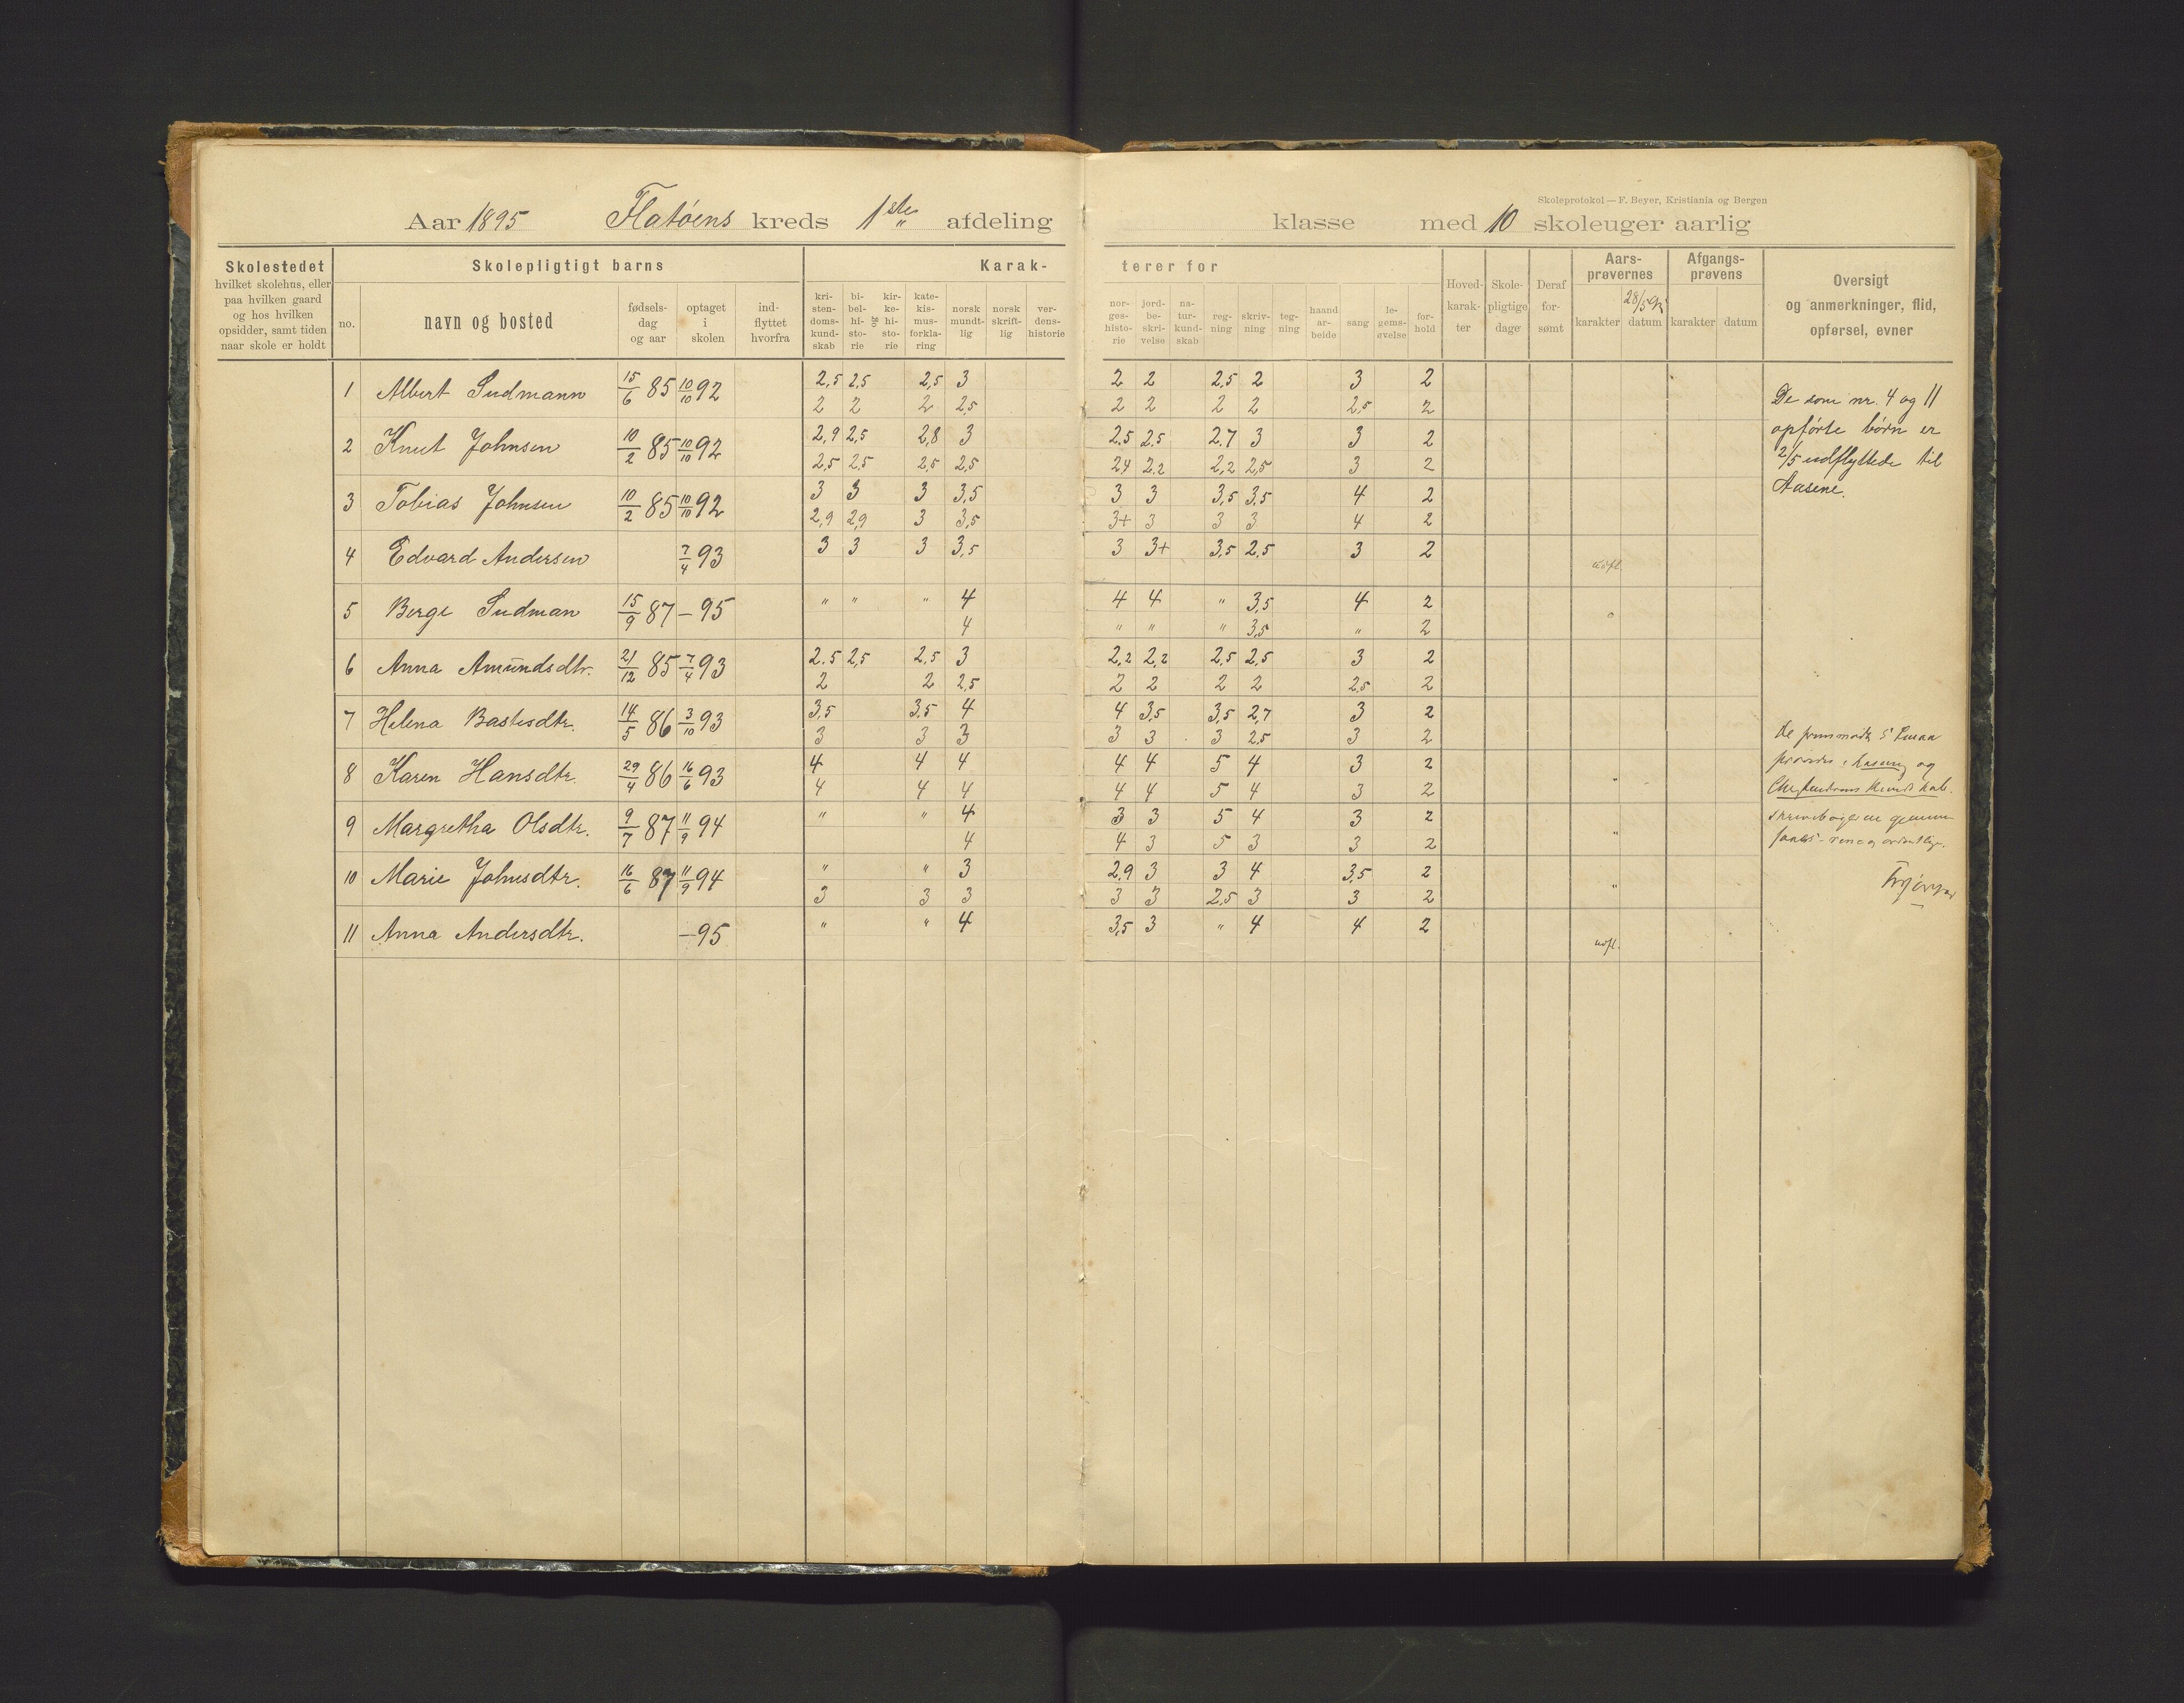 Skoleprotokol — F. Beyer, Kristiania og Bergen
Aar 1895 Flatöens kreds 1ste afdeling klasse med 10 skoleuger aarlig
Skolestedet
hvilket skolehus, eller
paa hvilken gaard
og hos hvilken
opsidder, samt tiden
naar skole er holdt
Skolepligtigt barns
no.
navn og bosted
fødsels-
dag
og aar
optaget
i
skolen
ind-
flyttet
hvorfra
Karak-
kri-
sten-
doms-
kund-
skab
bi-
bel-
hi-
sto-
rie
og
kir-
ke-
hi-
sto-
rie
kate-
kis-
mus-
forkla-
ring
norsk
mundt-
lig
norsk
skrift-
lig
ver-
dens-
historie
terer for
nor-
ges-
histo-
rie
jord-
be-
skri-
velse
na-
tur-
kund-
skab
reg-
ning
skriv-
ning
teg-
ning
haand
ar-
beide
sang
le-
gems-
øvelse
for-
hold
Hoved-
karak-
ter
Skole-
pligtige
dage
Deraf
for-
sømt
Aars-
prøvernes
28/5 95
karakter datum
Afgangs-
prøvens
karakter datum
Oversigt
og anmerkninger, flid,
opførsel, evner
1 Albert Sudmann 15/6 85 10/10 92 2,5 2,5 2,5 3 2 2 2,5 2 3 2
2 2 2 2,5 2 2 2 2 2,5 2
2 Knut Johnsen 10/2 85 10/10 92 2,9 2,5 2,8 3 2.5 2.5 2.7 3 3 2
2,5 2,5 2,5 2,5 2,4 2,2 2,2 2,5 3 2
3 Tobias Johnsen 10/2 85 10/10 92 3 3 3 3,5 3 3 3,5 3,5 4 2
2,9 2,9 3 3,5 3+ 3 3 3 4 2
4 Edvard Andersen 7/4 93 3 3 3 3,5 3 3+ 3,5 2,5 3 2 udfl.
5 Berge Sudman 15/9 87 – 95 " " " 4 4 4 " 3,5 4 2
4 " " " 3,5 " 2
6 Anna Amundsdtr. 21/12 85 7/4 93 2.5 2,5 2,5 3 2,2 2,2 2,5 2,5 3 2
2 2 2,5 2 2 2 2 2,5 2
7 Helena Bastesdtr. 14/5 86 3/10 93 3,5 3,5 4 4 3,5 3,5 2,7 3 2
3 3 3 3 3 3 2,5 3 2
8 Karen Hansdtr. 29/4 86 16/6 93 4 4 4 4 4 5 4 3 2
4 4 4 4 4 5 4 3 2 "
9 Margretha Olsdtr. 9/7 87 11/9 94 " " 4 3 3 5 4 3 2
4 4 3 5 3 3 2 "
10 Marie Johnsdtr. 16/6 87 11/9 94 " " 3 2,9 3 3 4 3,5 2
3 3 3 3 3 2,5 3 3 2 "
11 Anna Andersdtr. – 95 " " 4 3,5 3 " 4 4 2 udfl.
De som nr. 4 og 11
opførte børn er
2/5 udflyttede til
Aasene.
og